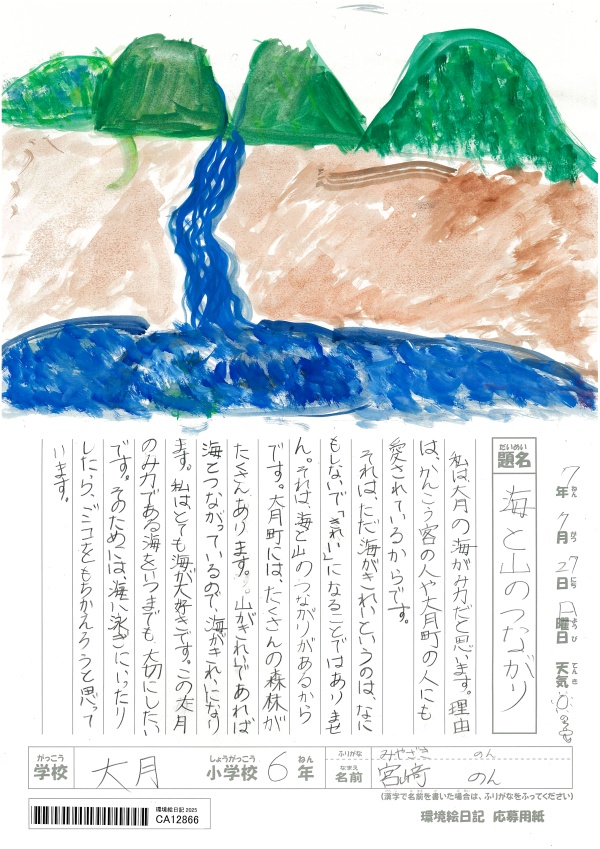 7年 7月 27日 日曜日 天気
ねん がつ にち ようび てんき
だいめい
題名 海と山のつながり
私は、大月の海がみ力だと思います。理由
は、かんこう客の人や大月町の人にも
愛されているからです。
それは、ただ海がきれいというのは、なに
もしないで「きれい」になることではありませ
ん。それは、海と山のつながりがあるから
です。大月町には、たくさんの森林が
たくさんあります。山が「きれい」であれば
海とつながっているので、海がきれいになり
ます。私はとても海が大好きです。この大月
のみ力である海をいつまでも、大切にしたい
です。そのためには、海に泳ぎにいったり
したら、ゴミをもちかえろうと思って
います。
がっこう しょうがっこう ねん
学校 大月 小学校 6年
ふりがな みやざき のん
なまえ
名前 宮﨑 のん
(漢字で名前を書いた場合は、ふりがなをふってください)
環境絵日記 応募用紙
環境絵日記 2025
CA12866